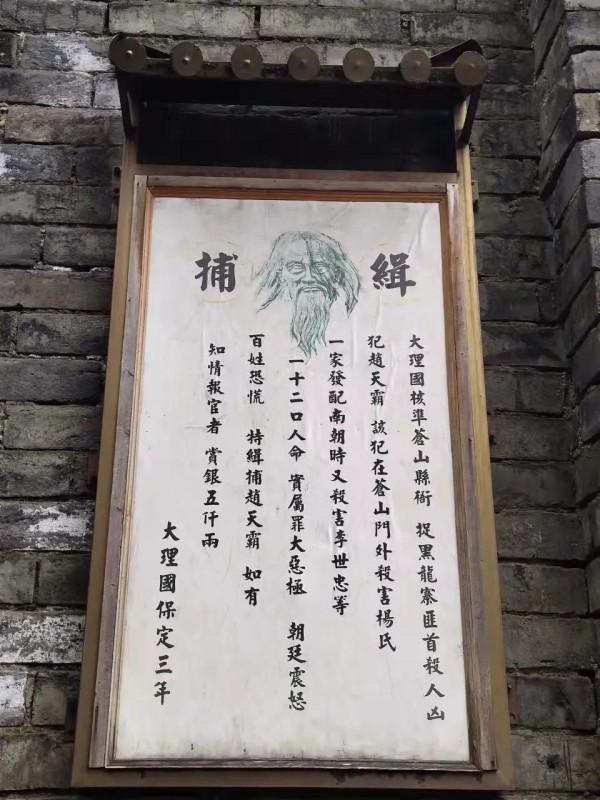 緝捕
大理國核準蒼山縣衙 捉黑龍寨匪首殺人凶
犯趙天霸 該犯在蒼山門外殺害楊氏
一家發配南朝時又殺害李世忠等
一十二口人命 實屬罪大惡極 朝廷震怒
百姓恐慌 特緝捕趙天霸 如有
知情報官者 賞銀五仟兩
大理國保定三年